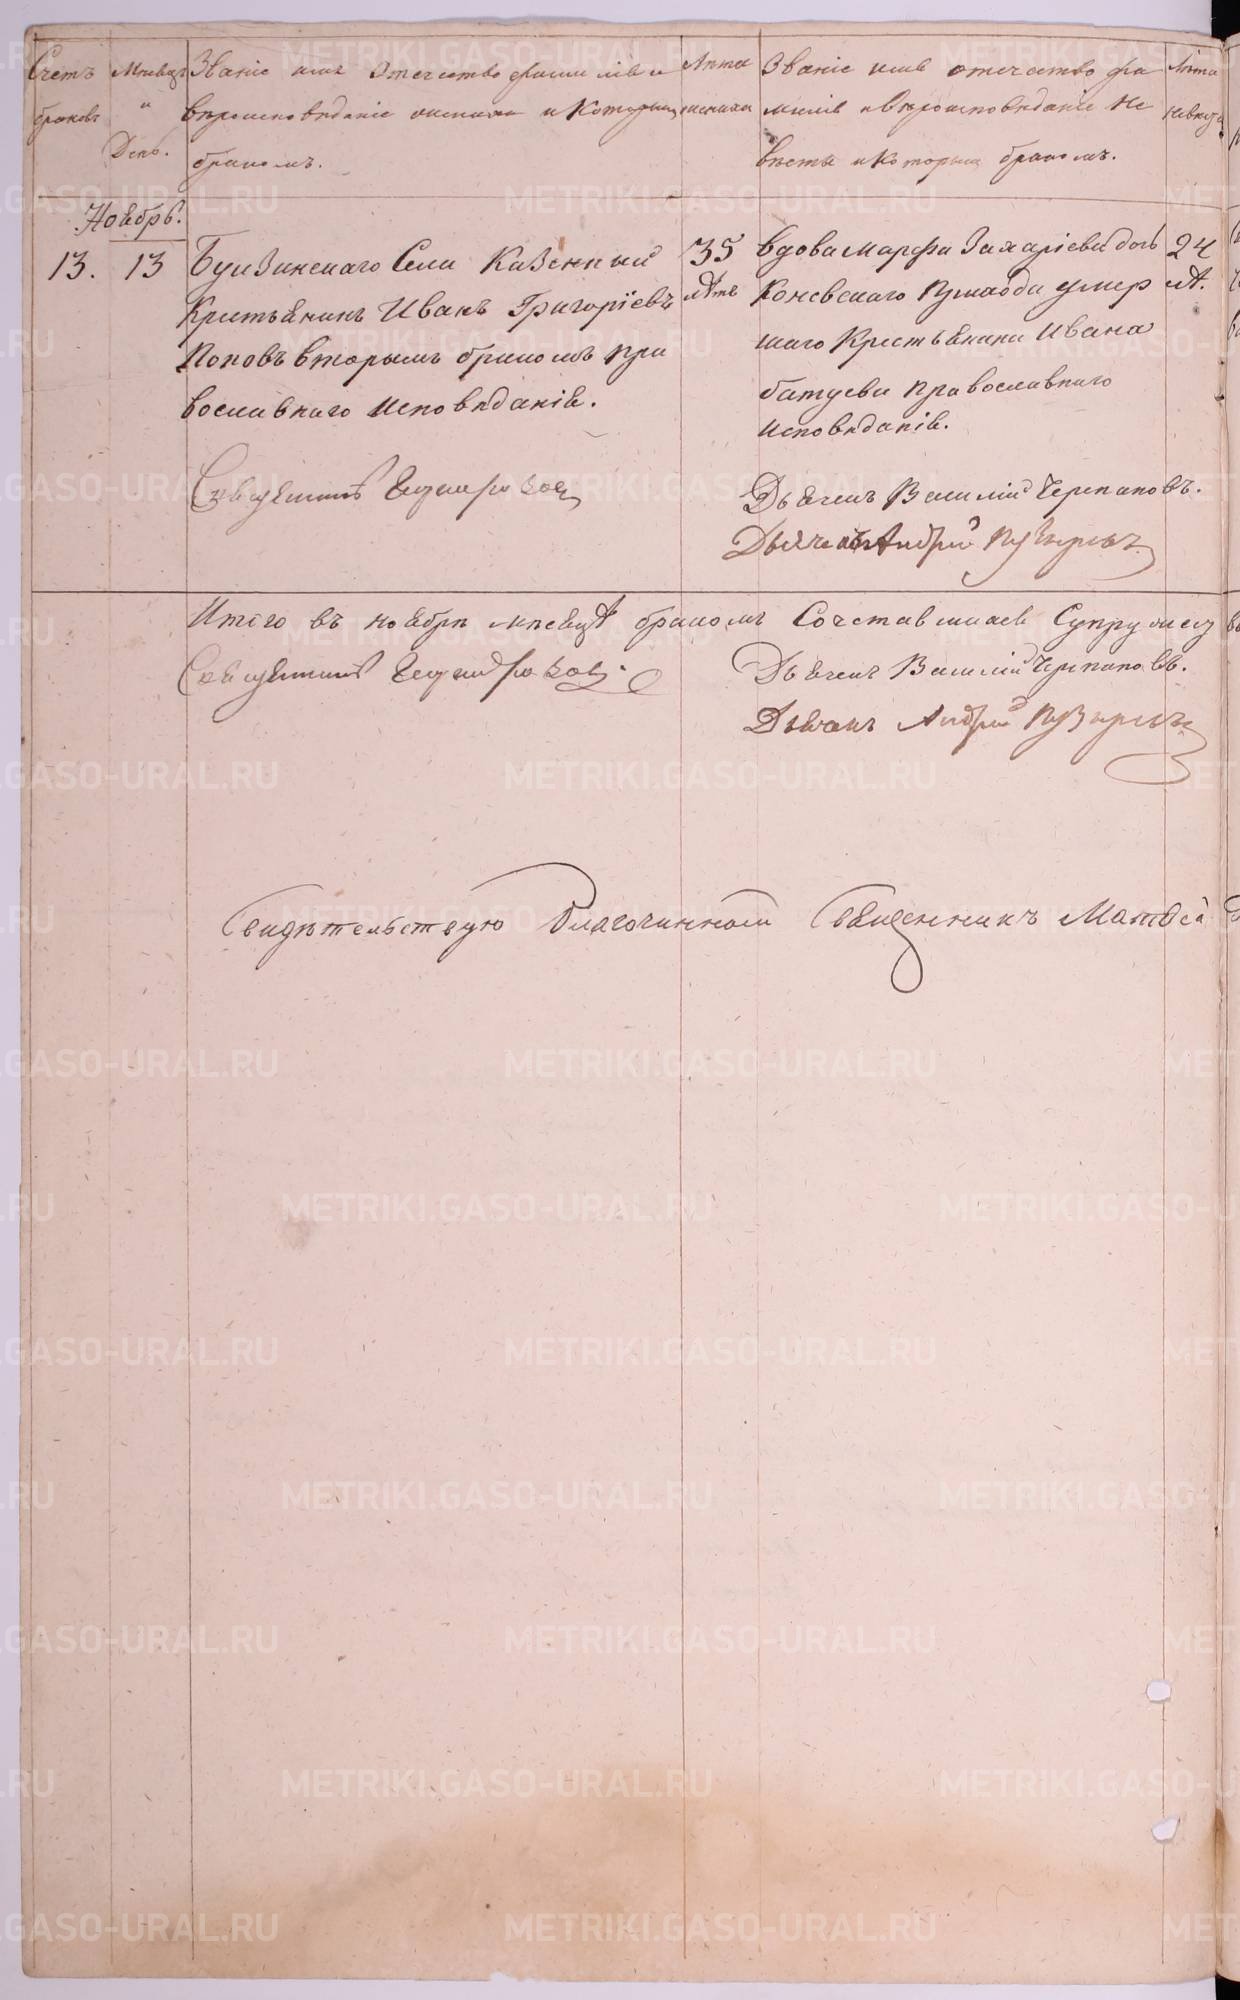 Счетъ браковъ
Месяцъ и День.
Званіе имя отечество фамилія и
вероисповеданіе жениха и которым
бракомъ.
Лета жениха
Званіе имя отечество фа
милія и вероисповеданіе не
весты и которым бракомъ.
Лета невесты
Ноябрь.
13. 13
Бутзинскаго Села Казенный
Крестьянинъ Иванъ Григоріевъ
Поповъ вторымъ бракомъ пра
вославнаго исповеданія.
35 летъ
Вдова Марфа Захаріева дочь
Коневскаго умер
шаго Крестьянина Ивана
батуева православнаго
исповеданія.
24 л.
Священникъ
Дьячекъ Василій Черепановъ.
Дьячекъ Андрей Пузыревъ
Итого въ ноябре месяце бракомъ Сочетавшихся Супружест
Священникъ
Дьячекъ Василій Черепановъ.
Андрей Пузыревъ
Свидетельствую Благочинной Священникъ Матвей
METRIKI.GASO-URAL.RU